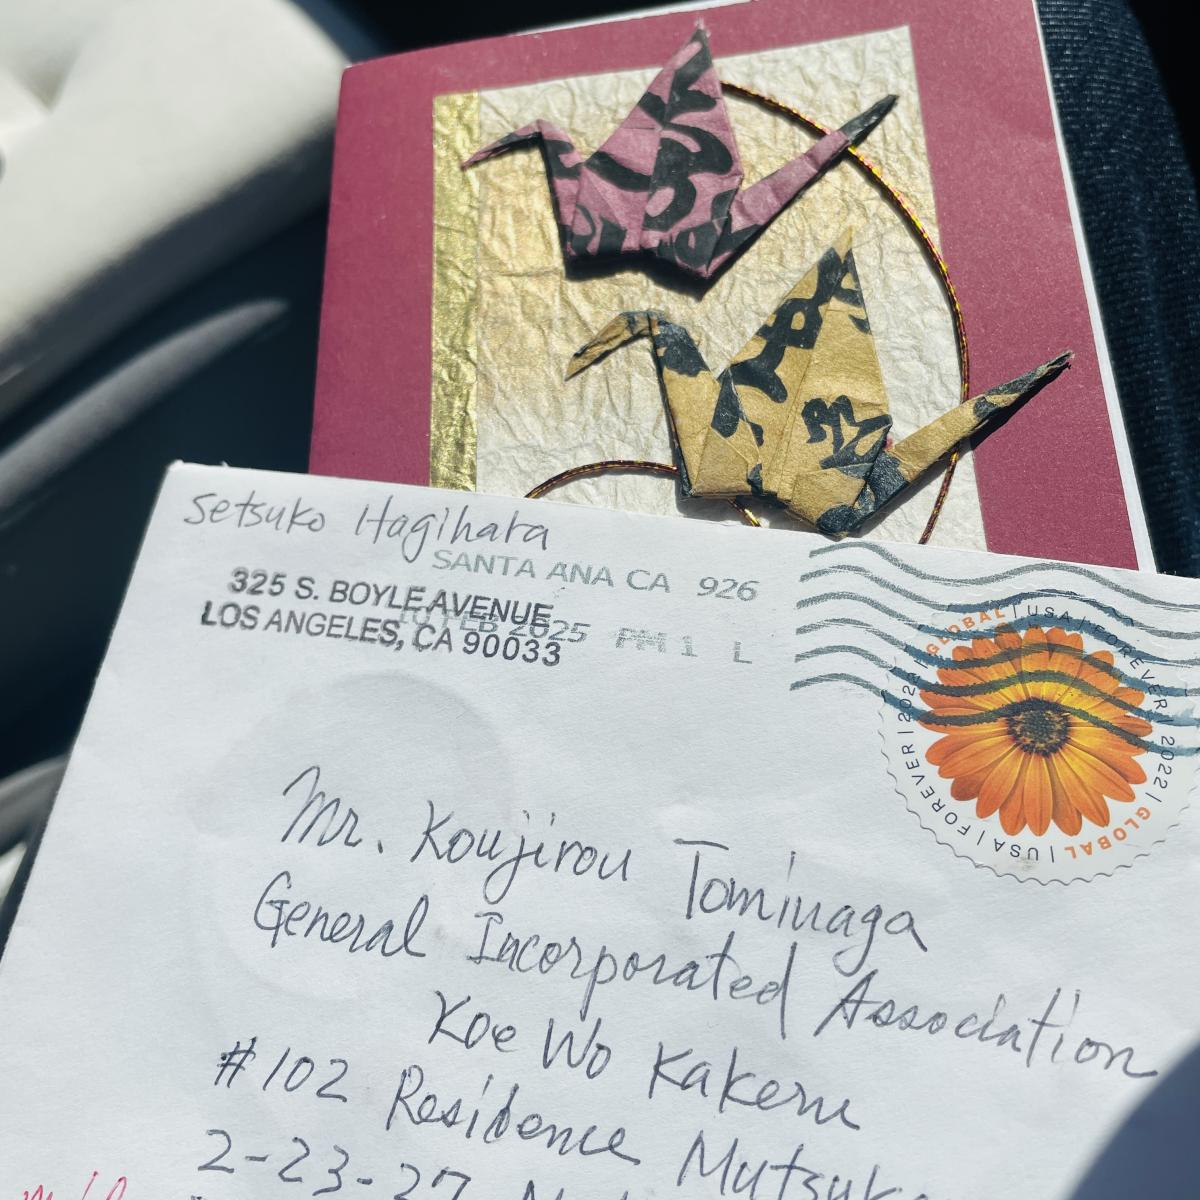 Setsuko Hagihara
SANTA ANA CA 926
325 S. BOYLE AVENUE
10 FEB 2025 PM 1 L
LOS ANGELES, CA 90033
GLOBAL | USA | FOREVER | 2022 | GLOBAL | USA | FOREVER | 2022
Mr. Koujirou Tominaga
General Incorporated Association
Koe Wo Kakeru
#102 Residence Mutsuk
2-23-37